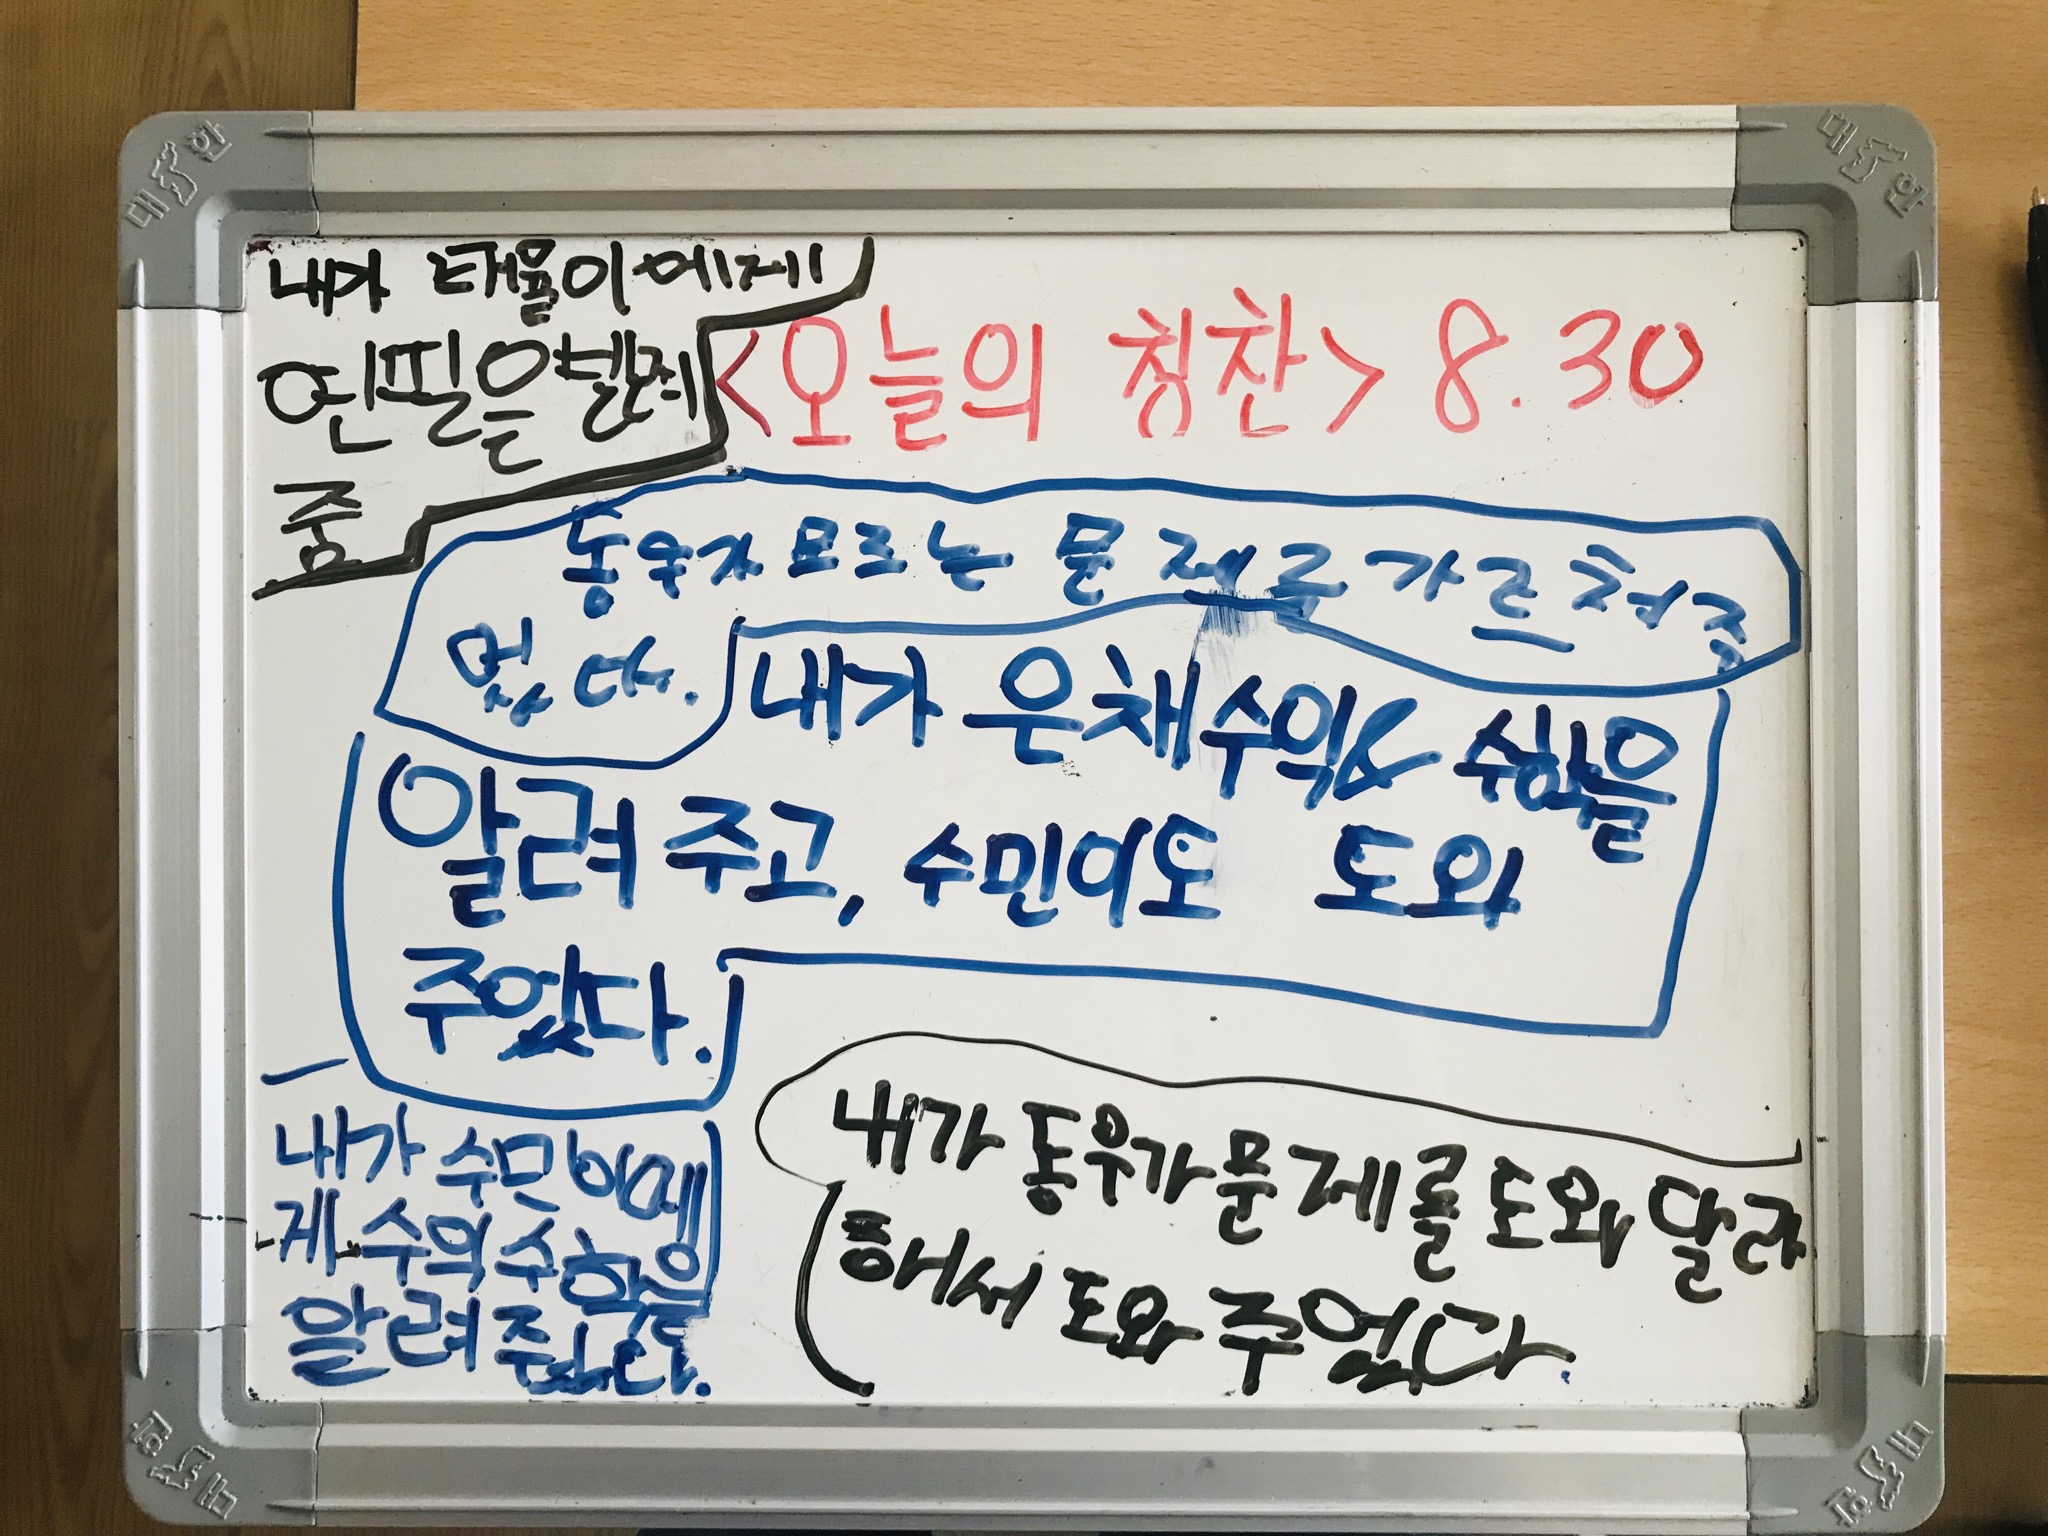 내가 태율이에게
연필을 빌려
줌
<오늘의 칭찬> 8.30
동우가 모르는 문제를 가르쳐 주
었다.
내가 은채 수익 수학을
알려 주고, 수민이도 도와
주었다.
내가 수민이에
게 수익 수학을
알려 주었다.
내가 동우가 문제를 도와 달라
해서 도와 주었다.
대한
대한
대한
대한